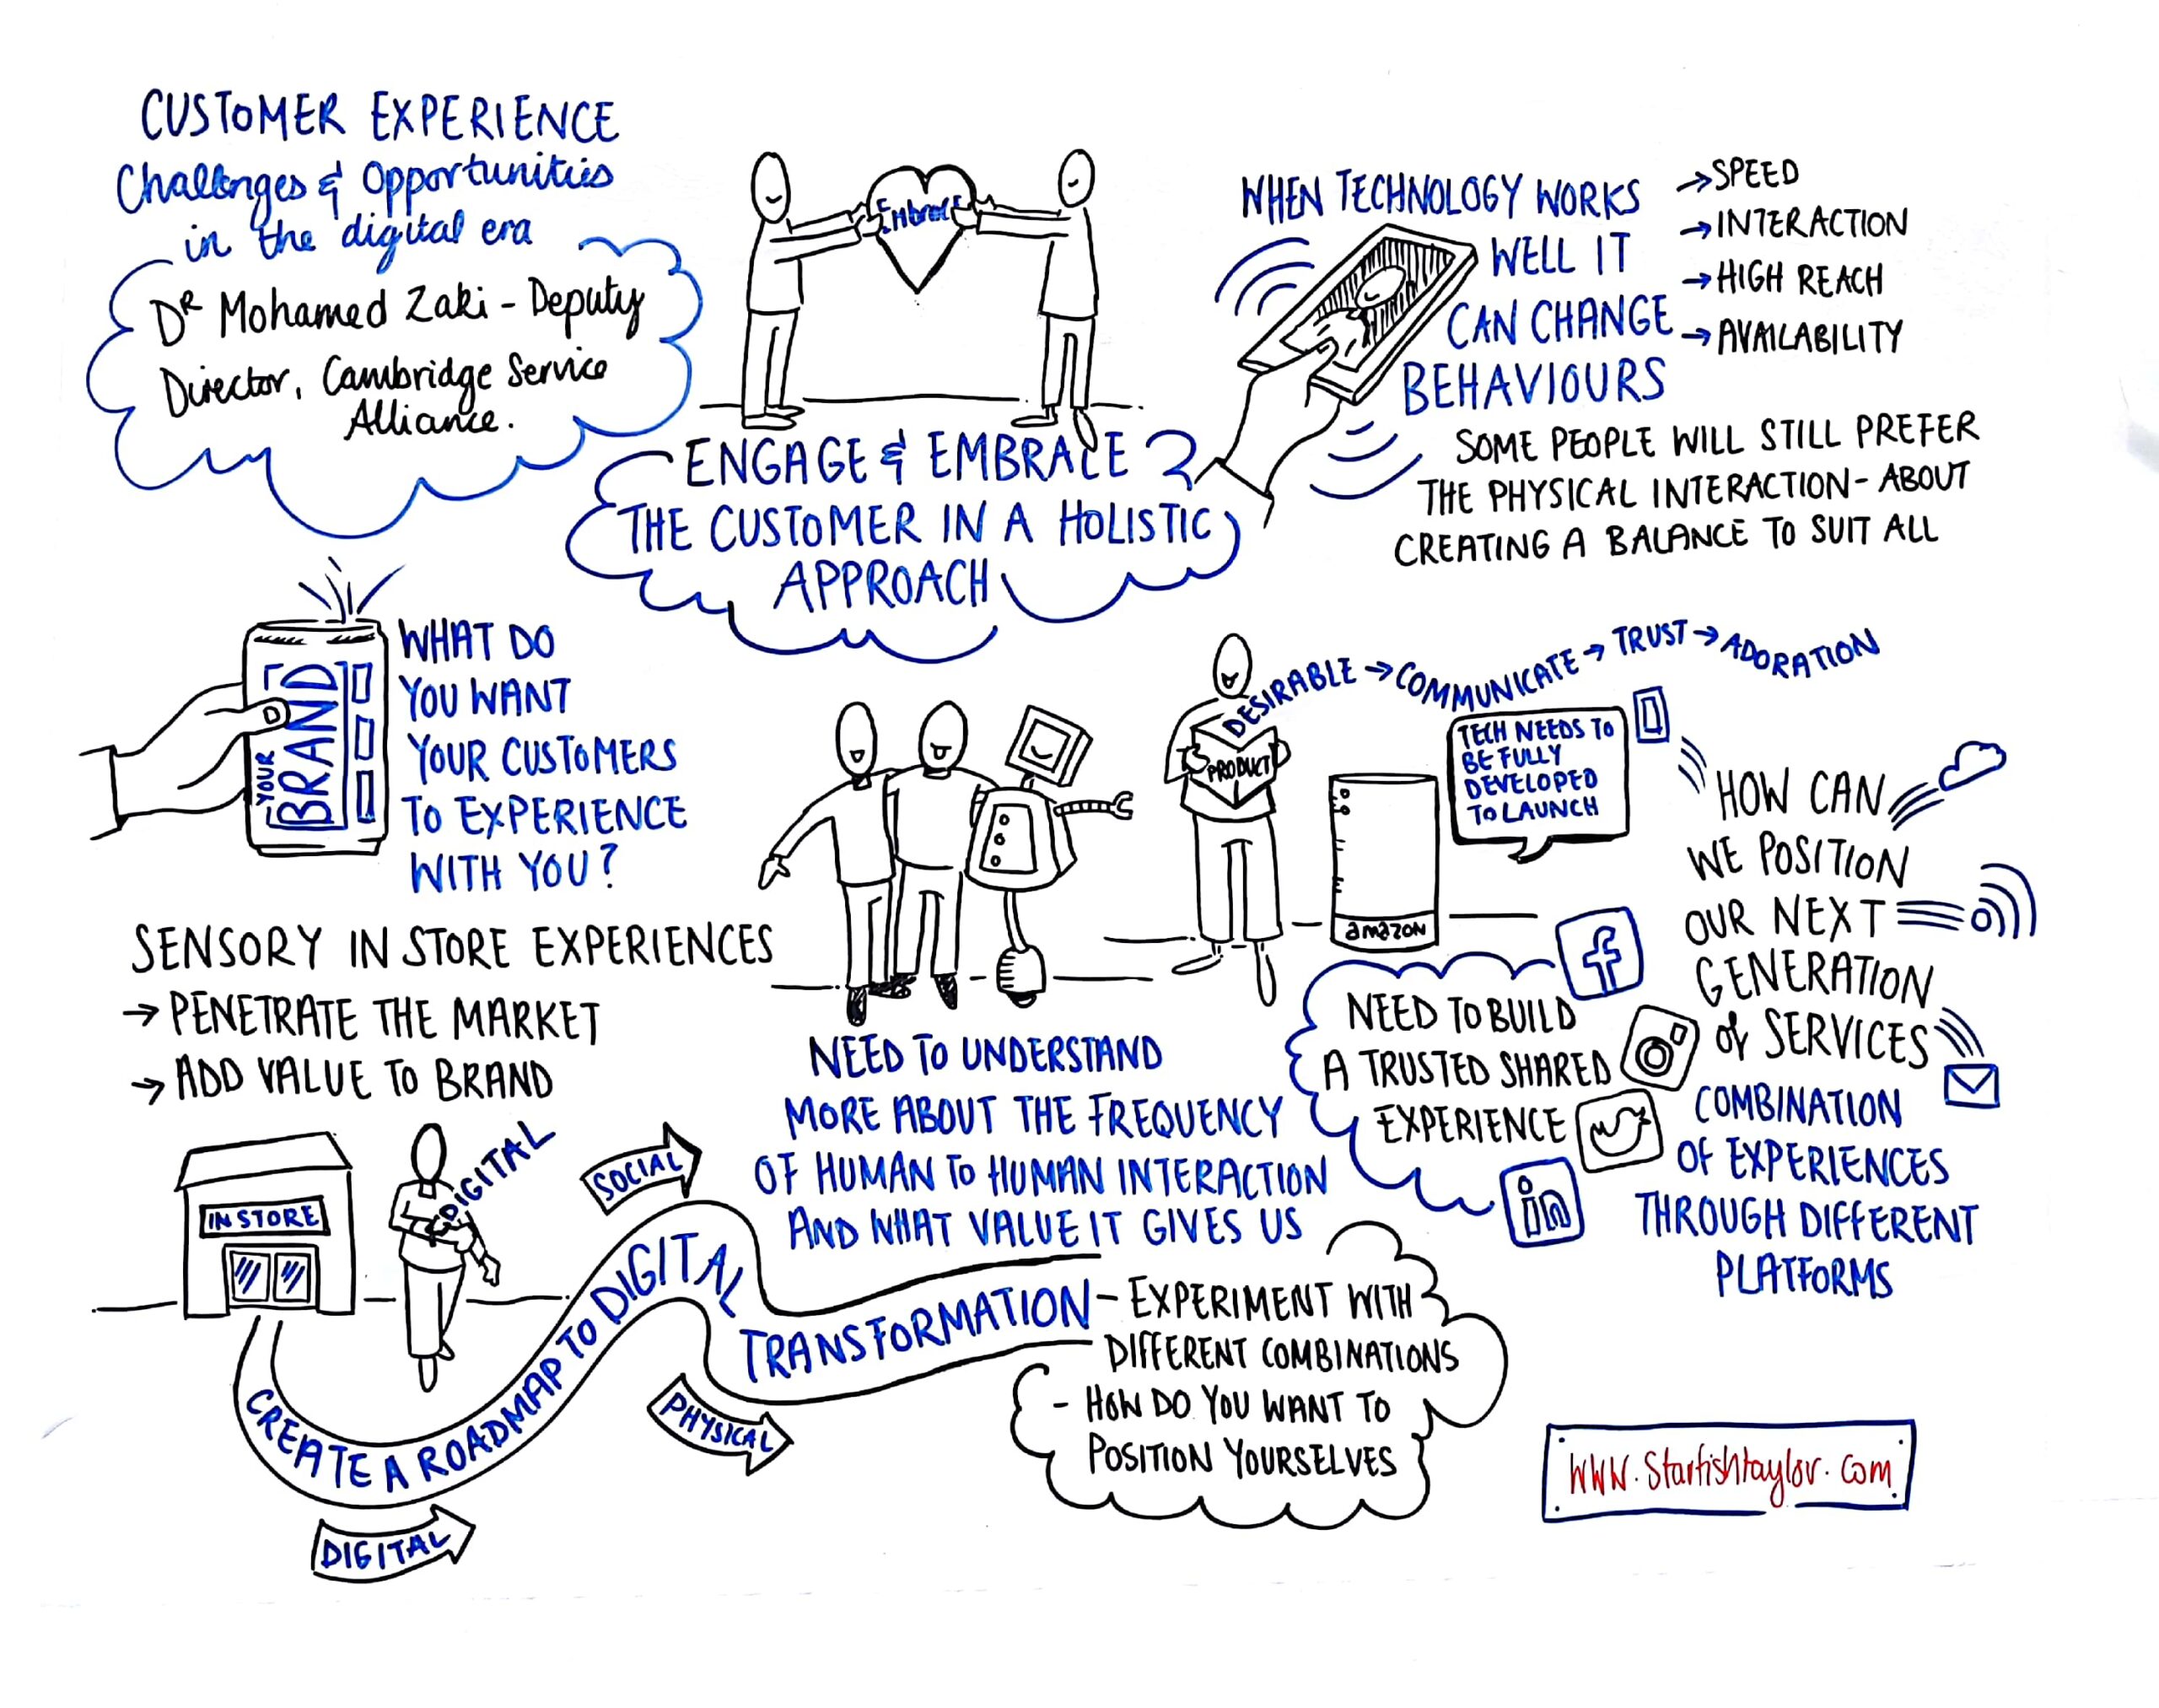 CUSTOMER EXPERIENCE
Challenges & Opportunities
in the digital era
DR Mohamed Zaki - Deputy
Director, Cambridge Service
Alliance.
Embrace
ENGAGE & EMBRACE
THE CUSTOMER IN A HOLISTIC
APPROACH
WHEN TECHNOLOGY WORKS
WELL IT
CAN CHANGE
BEHAVIOURS
→ SPEED
→ INTERACTION
→ HIGH REACH
→ AVAILABILITY
SOME PEOPLE WILL STILL PREFER
THE PHYSICAL INTERACTION - ABOUT
CREATING A BALANCE TO SUIT ALL
YOUR
BRAND
WHAT DO
YOU WANT
YOUR CUSTOMERS
TO EXPERIENCE
WITH YOU?
SENSORY IN STORE EXPERIENCES
→ PENETRATE THE MARKET
→ ADD VALUE TO BRAND
IN STORE
DIGITAL
NEED TO UNDERSTAND
MORE ABOUT THE FREQUENCY
OF HUMAN TO HUMAN INTERACTION
AND WHAT VALUE IT GIVES US
DESIRABLE → COMMUNICATE → TRUST → ADORATION
PRODUCT
TECH NEEDS TO
BE FULLY
DEVELOPED
TO LAUNCH
amazon
NEED TO BUILD
A TRUSTED SHARED
EXPERIENCE
f
in
HOW CAN
WE POSITION
OUR NEXT
GENERATION
of SERVICES
COMBINATION
OF EXPERIENCES
THROUGH DIFFERENT
PLATFORMS
CREATE A ROADMAP TO DIGITAL
TRANSFORMATION
SOCIAL
PHYSICAL
DIGITAL
- EXPERIMENT WITH
DIFFERENT COMBINATIONS
- HOW DO YOU WANT TO
POSITION YOURSELVES
WWW.Starfishtaylor.com